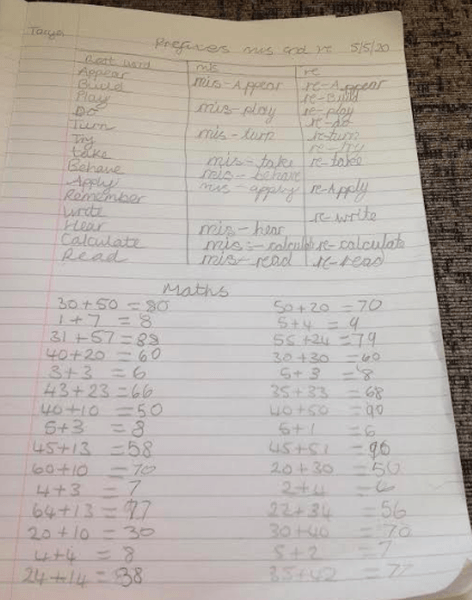 Prefixes mis and re 5/5/20
Root word mis re
Appear mis-Appear re-Appear
Build re-Build
Play mis-play re-play
Do re-do
Turn mis-turn re-turn
Try re-try
take mis-take re-take
Behave mis-behave
Apply mis-apply re-Apply
Remember
write re-write
Hear mis-hear
Calculate mis-calculate re-calculate
Read mis-read re-read
Maths
30+50 =80 50+20 =70
1+7 =8 5+4 =9
31+57=88 55+24=79
40+20 =60 30+30 =60
3+3 =6 5+3 =8
43+23=66 35+33 =68
40+10 =50 40+50 =90
5+3 =8 5+1 =6
45+13 =58 45+51 =96
60+10 =70 20+30 =50
4+3 =7 2+4 =6
64+13 =77 22+34 =56
20+10 =30 30+40 =70
4+4 =8 5+2 =7
24+14 =38 35+42